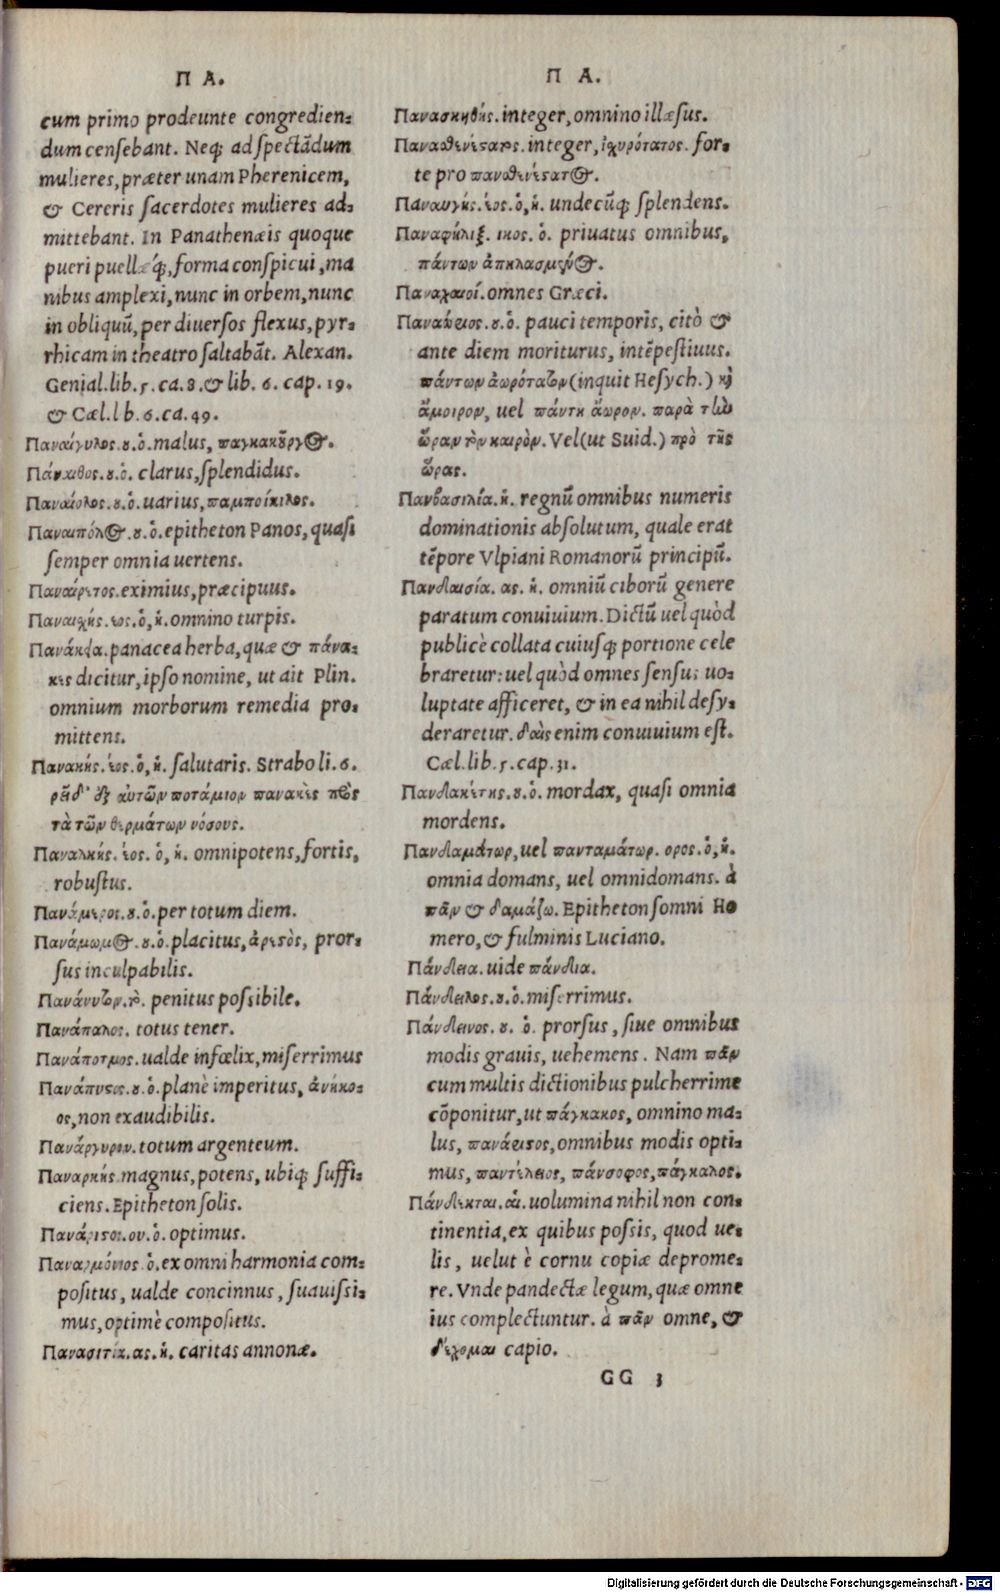 Π Α.
cum primo prodeunte congredien⸗
dum censebant. Neq; ad spectãdum
mulieres, præter unam Pherenicem,
& Cereris sacerdotes mulieres ad⸗
mittebant. In Panathenæis quoque
pueri puellæq́;, forma conspicui, ma
nibus amplexi, nunc in orbem, nunc
in obliquũ, per diuersos flexus, pyr⸗
rhicam in theatro saltabãt. Alexan.
Genial. lib. 5. ca. 8. & lib. 6. cap. 19.
& Cæl. l b. 6. ca. 49.
Παναίγυλος. ȣ. ὁ. malus, παγκακȣ͂ργος.
ȣ. ὁ. clarus, splendidus.
Παναίολος. ȣ. ὁ. uarius, παμποίκιλος.
Παναιπόλος. ȣ. ὁ. epitheton Panos, quasi
semper omnia uertens.
Παναίρετος. eximius, præcipuus.
Παναιχής. έος. ὁ, ἡ. omnino turpis.
Πανάκεια. panacea herba, quæ & πάνα⸗
κες dicitur, ipso nomine, ut ait Plin.
omnium morborum remedia pro⸗
mittens.
Πανακής. έος. ὁ, ἡ. salutaris. Strabo li. 6.
ῥεῖ δ' ἐξ αὐτῶν ποτάμιον πανακὲς πρὸς
τὰ τῶν θερμάτων νόσους.
Παναλκής. έος. ὁ, ἡ. omnipotens, fortis,
robustus.
Πανάμερος. ȣ. ὁ. per totum diem.
Πανάμωμος. ȣ. ὁ. placitus, ἀρεστὸς, pror⸗
sus inculpabilis.
Πανάνυστον. τὸ. penitus possibile.
Πανάπαλος. totus tener.
Πανάποτμος. ualde infœlix, miserrimus
Πανάπυστος. ȣ. ὁ. planè imperitus, ἀνήκο⸗
ος, non exaudibilis.
Πανάργυρον. totum argenteum.
Παναρκής. magnus, potens, ubiq; suffi⸗
ciens. Epitheton solis.
Πανάριστος. ου. ὁ. optimus.
Παναρμόνιος. ὁ. ex omni harmonia com⸗
positus, ualde concinnus, suauissi⸗
mus, optimè compositus.
Πανασιτία. ας. ἡ. caritas annonæ.
Π Α.
Πανασκηθής. integer, omnino illæsus.
Πανασθενέστατος. integer, ἰσχυρότατος. for⸗
te pro πανσθενέστατος.
Παναυγής. έος. ὁ, ἡ. undecũq; splendens.
Παναφήλιξ. ικος. ὁ. priuatus omnibus,
πάντων
Παναχαιοί. omnes Græci.
Παναώριος. ȣ. ὁ. pauci temporis, citò &
ante diem moriturus, intẽpestiuus.
πάντων ἀωρότατον (inquit Hesych.) καὶ
ἄμοιρον, uel πάντη ἄωρον. παρὰ τὴν
ὥραν τὸν καιρὸν. Vel (ut Suid.) πρὸ τῆς
ὥρας.
Πανβασιλεία. ἡ. regnũ omnibus numeris
dominationis absolutum, quale erat
tẽpore Vlpiani Romanorũ principũ.
Πανδαισία. ας. ἡ. omniũ ciborũ genere
paratum conuiuium. Dictũ uel quòd
publicè collata cuiusq; portione cele
braretur: uel quòd omnes sensus uo⸗
luptate afficeret, & in ea nihil desy⸗
deraretur. δαὶς enim conuiuium est.
Cæl. lib. 5. cap. 31.
Πανδακέτης. ȣ. ὁ. mordax, quasi omnia
mordens.
Πανδαμάτωρ, uel πανταμάτωρ. ορος. ὁ, ἡ.
omnia domans, uel omnidomans. à
πᾶν & δαμάζω. Epitheton somni Ho
mero, & fulminis Luciano.
Πάνδεια. uide πάνδια.
Πάνδειλος. ȣ. ὁ. miserrimus.
Πάνδεινος. ȣ. ὁ. prorsus, siue omnibus
modis grauis, uehemens. Nam πᾶν
cum multis dictionibus pulcherrime
cõponitur, ut πάγκακος, omnino ma⸗
lus, πανάριστος, omnibus modis opti⸗
mus, παντέλειος, πάνσοφος, πάγκαλος.
Πάνδεκται. αἱ. uolumina nihil non con⸗
tinentia, ex quibus possis, quod ue⸗
lis, uelut è cornu copiæ deprome⸗
re. Vnde pandectæ legum, quæ omne
ius complectuntur. à πᾶν omne, &
δέχομαι capio.
GG 3
Digitalisierung gefördert durch die Deutsche Forschungsgemeinschaft - DFG